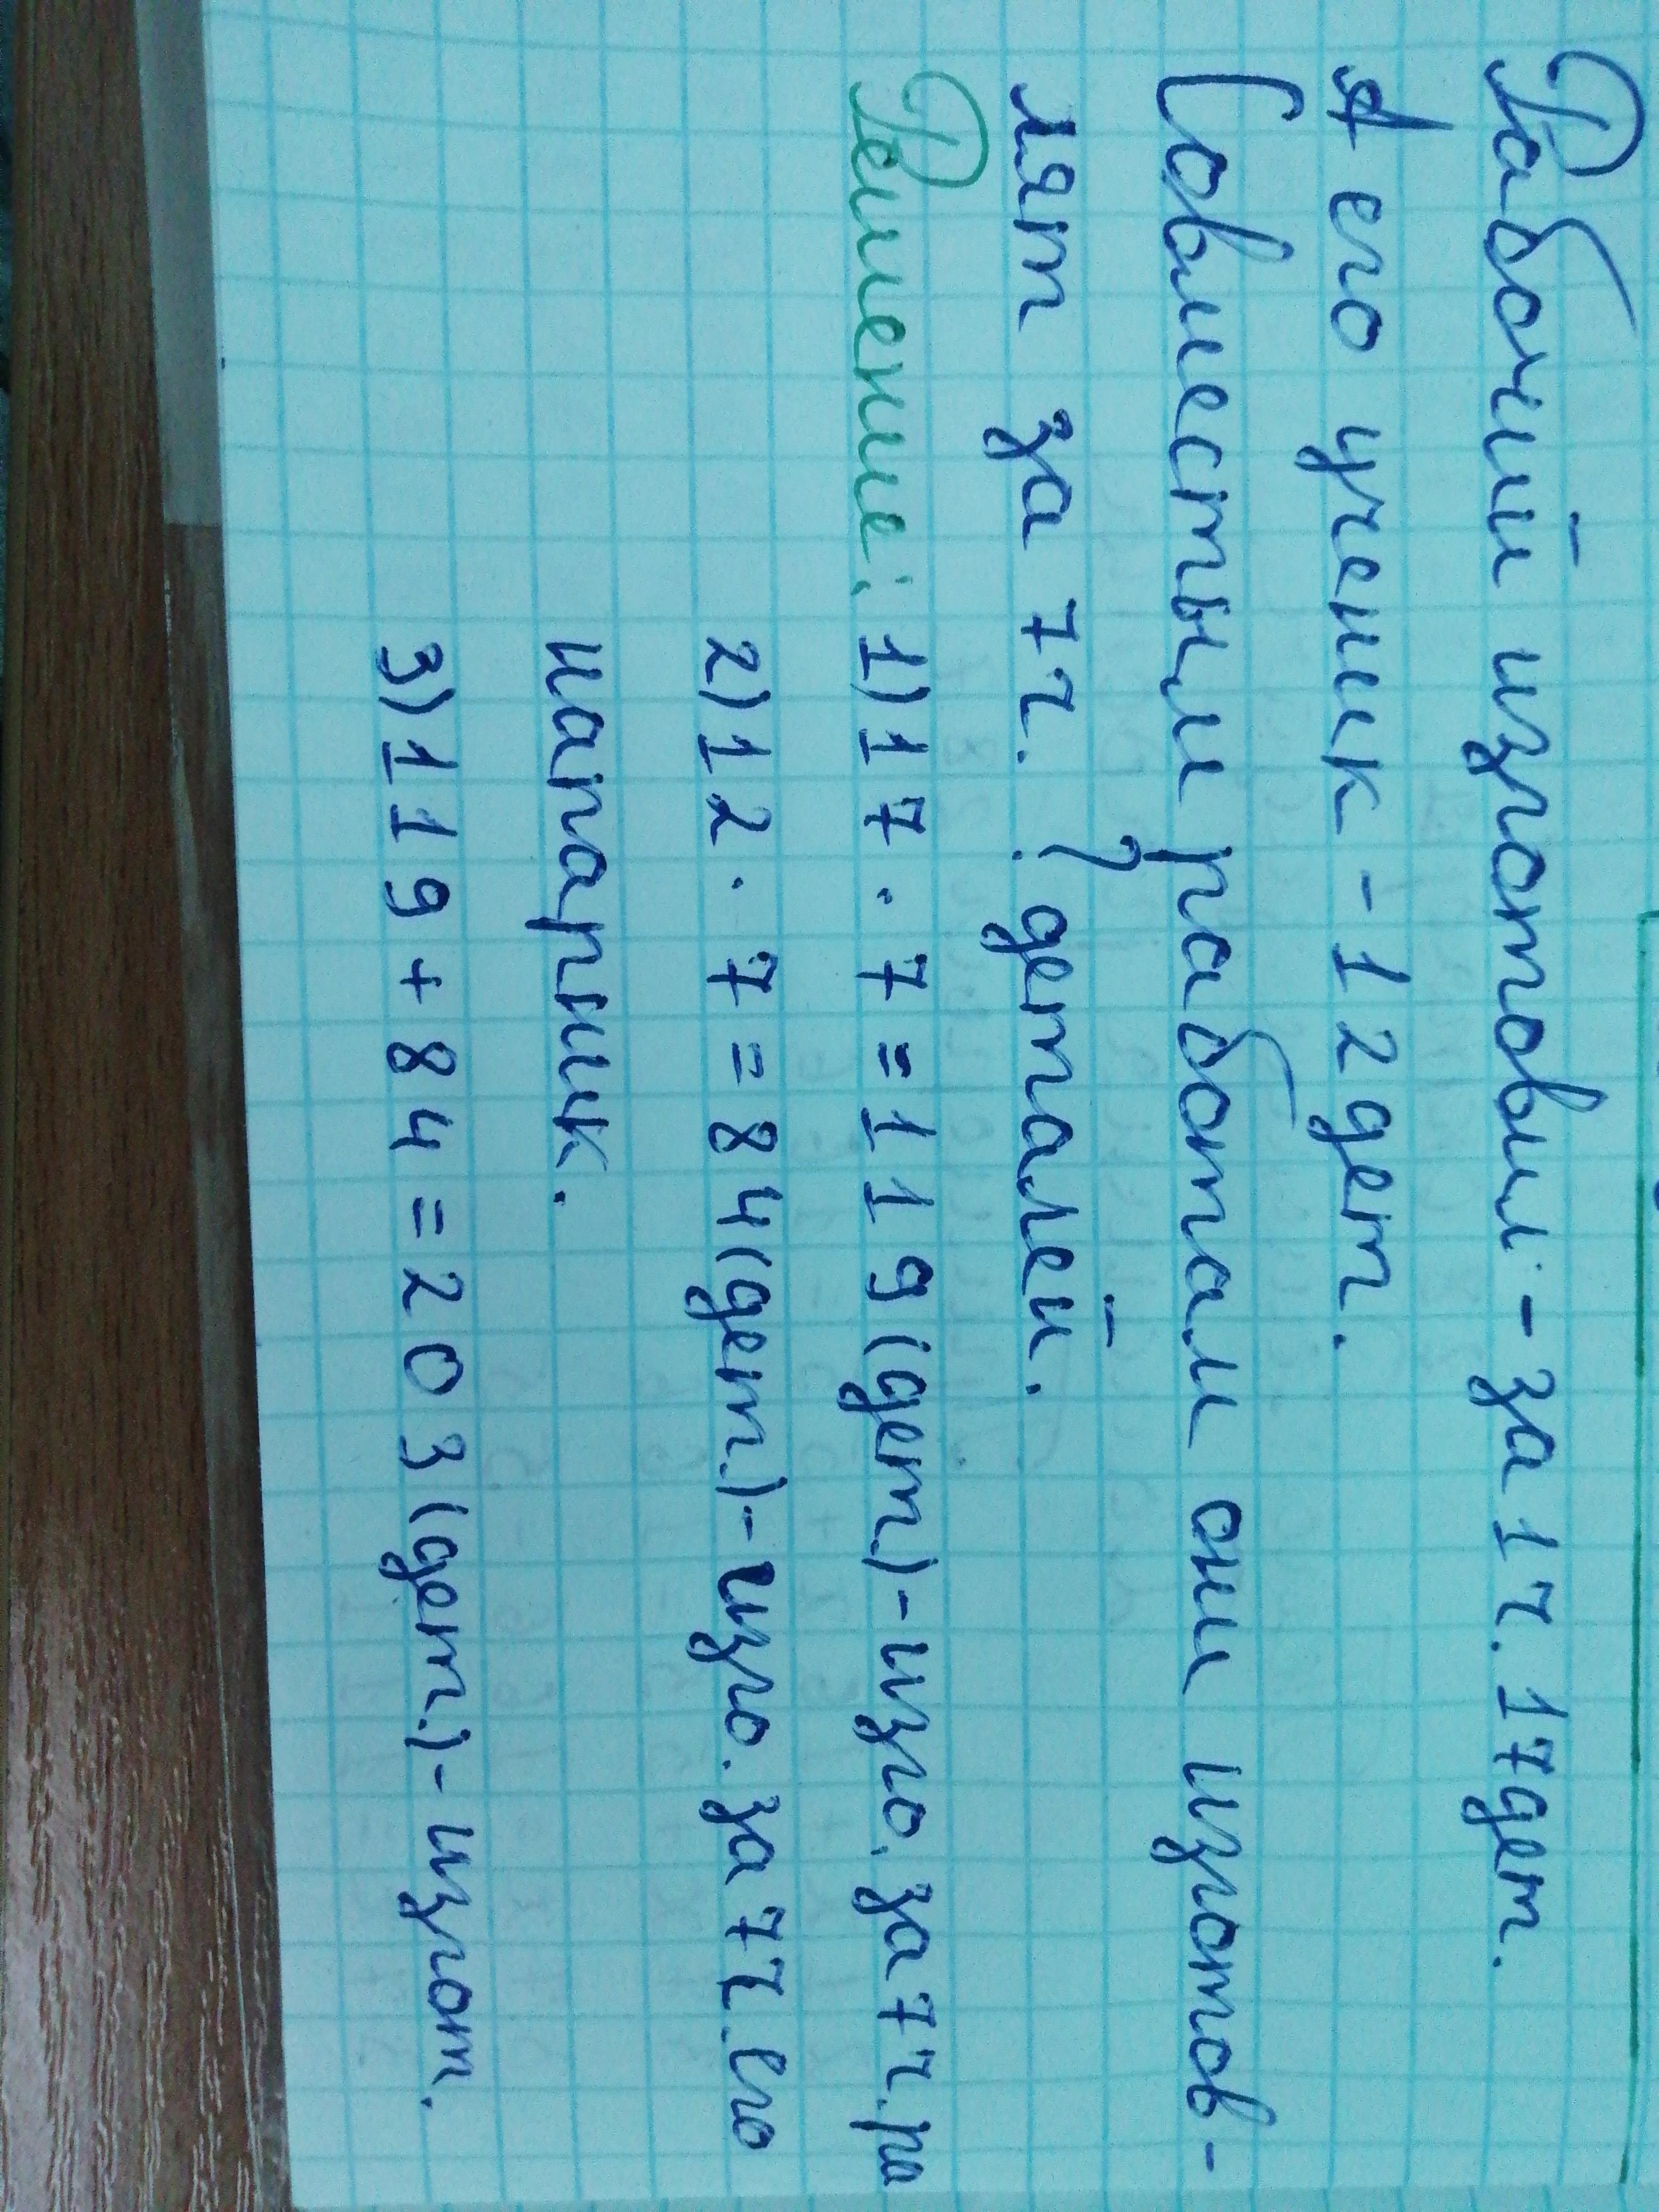 Рабочий изготовил - за 1 ч. 17 дет.
А его ученик - 12 дет.
Совместым работам они изготов-
лят за 7 ч. ? деталей.
Решение: 1) 17 · 7 = 119 (дет.) - изго. за 7 ч. ра
2) 12 · 7 = 84 (дет.) - изго. за 7 ч. его
напарник.
3) 119 + 84 = 203 (дет.) - изгот.